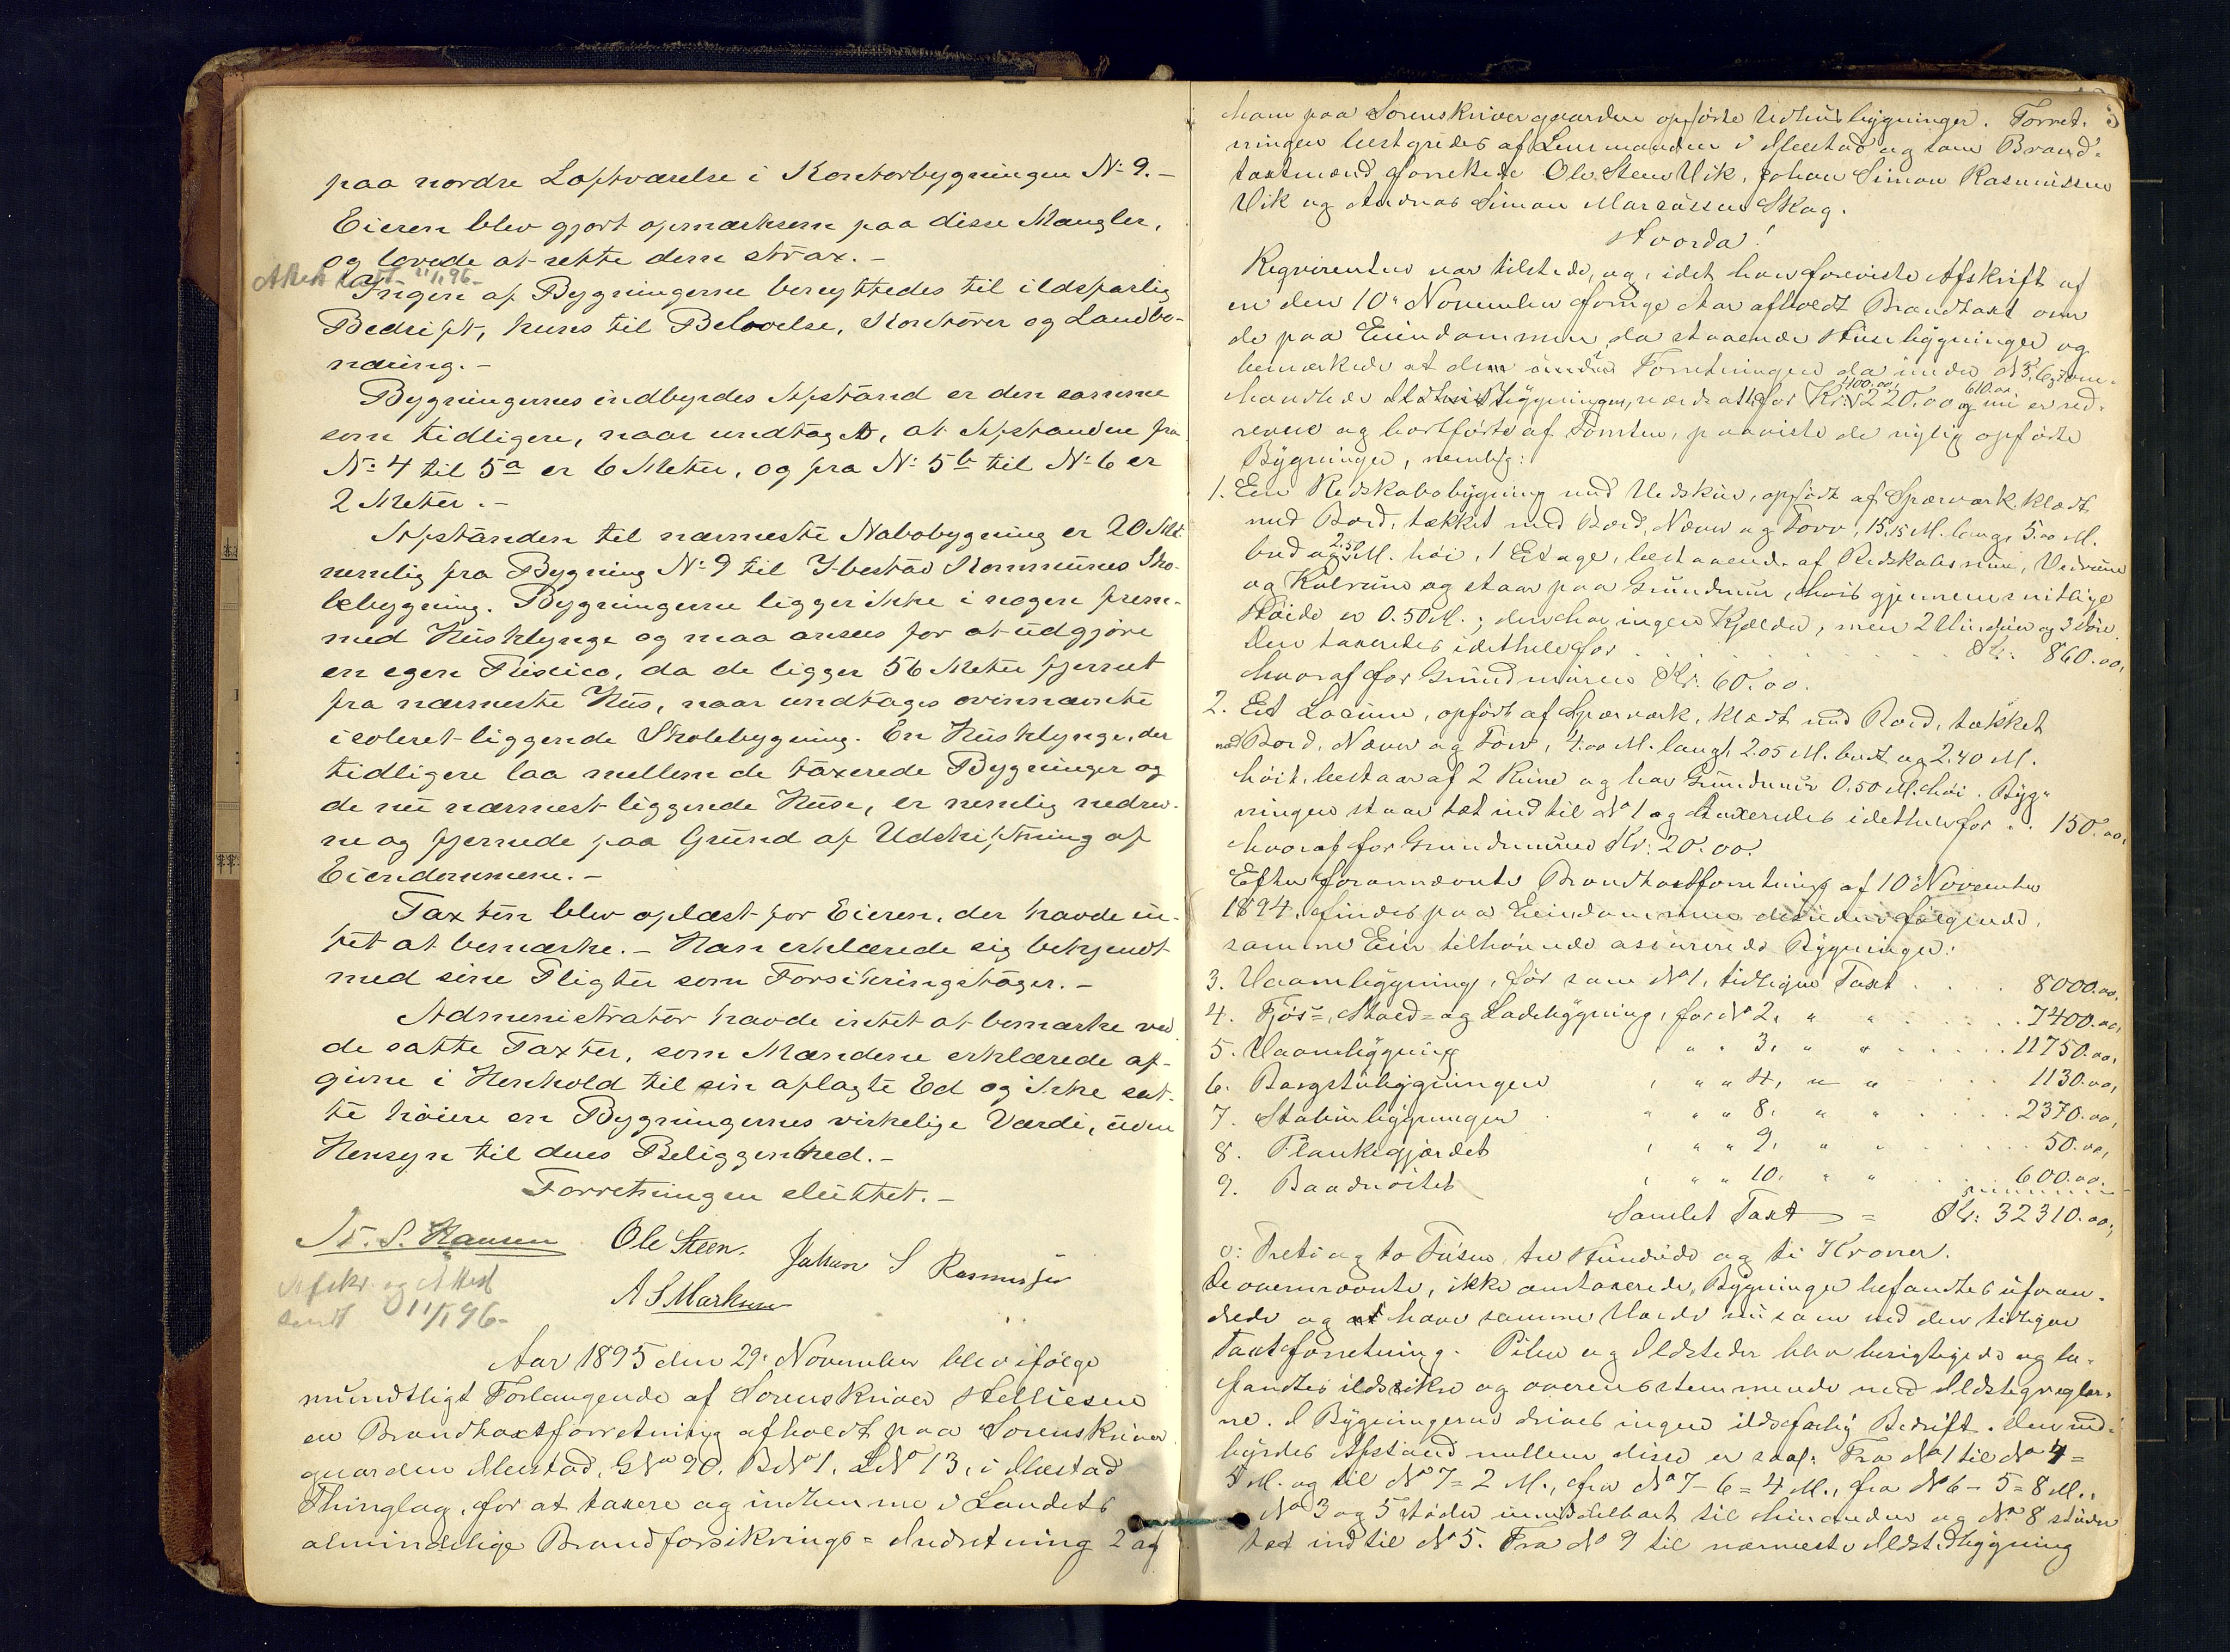 paa nordre Loftværelse i Kontorbygningen No 9. –
Eieren blev gjort opmærksom paa disse Mangler,
og lovede at rette dem strax. –
Attest sendt 11/1 96.
Ingen af Bygningerne benyttedes til ildsfarlig
Bedrift, kuns til Beboelse, Kontorer og Landbo-
næring. –
Bygningernes indbyrdes Afstand er den samme
som tidligere, naar undtages, at Afstanden fra
No 4 til 5a er 6 Meter, og fra No 5b til No 6 er
2 Meter. –
Afstanden til nærmeste Nabobygning er 20 Mt.
nemlig fra Bygning No 9 til Ibestad Kommunes Sko-
lebygning. Bygningerne ligger ikke i nogen frem-
med Husklynge og maa ansees for at udgjøre
en egen Risico, da de ligger 56 Meter fjernet
fra nærmeste Hus, naar undtages ovennævnte
isoleret liggende Skolebygning. En Husklynge, der
tidligere laa mellem de taxerede Bygninger og
de nu nærmest liggende Huse, er nemlig nedrev-
ne og fjernede paa Grund af Udskiftning af
Eiendommene. –
Taxten blev oplæst for Eieren, der havde in-
tet at bemærke. – Han erklærede sig bekjendt
med sine Pligter som Forsikringstager. –
Administrator havde intet at bemærke ved
de satte Taxter, som Mændene erklærede af-
givne i Henhold til sin aflagte Ed og ikke sat-
te høiere en Bygningernes virkelige Værdi, uden
Hensyn til deres Beliggenhed. –
Forretningen sluttet. –
S. Hansen Ole Steen. Johan S Rasmussen
A S Markusen
Afskr. og Attest
sendt 11/1 96 –
Aar 1895 den 29. November blev ifølge
mundtligt Forlangende af Sorenskriver Helliesen
en Brandtaxtforretning afholdt paa Sorenskriver
gaarden Maistad, GNo 90. BNo 1. LNo 13, i Maistad
Thinglag, for at taxere og indlemme i Landets
almindelige Brandforsikrings-Indretning 2 af
ham paa Sorenskrivergaarden opførte Udhusbygninger. Forret-
ningen bestyredes af Lensmanden i Maistad og som Brand-
taxtmænd forrettede Ole Steen Vik, Johan Simon Rasmussen
Vik og Andreas Simon Marcussen Skog.
Hvorda!
Reqvirenten var tilstede, og, idet han foreviste Afskrift af
en den 10de November forrige Aar afholdt Brandtaxt over
de paa Eiendommen da staaende Husebygninger og
bemærkede at de under Forretningen da under No 5, 6 og 7 om-
handlede Bygninger, værdsatte for Kr. 1400.00, 220.00 og 610.00 nu er ned-
revne og bortførte af Tomten, paaviste de nylig opførte
Bygninger, nemlig:
1. En Redskabsbygning med Vedskur, opført af Sperværk, klædt
med Bord, tækket med Bord, Næver og Torv, 15,15 M. lang, 5.00 M.
bred og 2.50 M. høi, 1 Etage, bestaaende af Redskabsrum, Vedrum
og Kulrum og staar paa Grundmur, hvis gjennemsnitlige
Høide er 0.50 M.; den har ingen Kjælder, men 2 Vinduer og 3 Døre.
Den taxeredes idethele for . . . . . Kr. 860.00,
hvoraf for Grundmuren Kr. 60.00.
2. Et Locum, opført af Sperværk, klædt med Bord, tækket
med Bord, Næver og Torv, 4.00 M. langt, 2.05 M. bredt og 2.40 M.
høit, bestaar af 2 Rum og har Grundmur 0.50 M. høi. Byg-
ningen staar tæt ind til No 1 og taxeredes idethele for . . 150.00,
hvoraf for Grundmuren Kr. 20.00.
Efter forannævnte Brandtaxtforretning af 10 November
1894, findes paa Eiendommen desuden følgende,
samme Eier tilhørende assurerede Bygninger:
3. Vaaningsbygning, før som No 1, tidligere Taxt . . . . 8000.00,
4. Fjøs-, Stald- og Ladebygning, før No 2, " " . . . . 7400.00,
5. Vaaningsbygning , " " 3, " " . . . . 11750.00,
6. Borgstubygningen , " " 4, " " . . . 1130.00,
7. Stabursbygningen " " " 8, " " . . . . 2370.00,
8. Plankegjærdet , " " 9, " " . . . . 50.00,
9. Baadnøstet , " " 10, " " . . . 600.00.
Samlet Taxt = Kr: 32310.00,
o: Treti og to Tusen, tre Hundrede og ti Kroner.
De ovennævnte, ikke omtaxerede, Bygninger befandtes uforan-
drede og at have samme Værdi nu som ved den tidligere
Taxtforretning. Piber og Ildsteder blev besigtigede og be-
fandtes ildsikre og overensstemmende med Ildstegsregler-
ne. I Bygningerne drives ingen ildsfarlig Bedrift. Den ind-
byrdes Afstand mellem disse er saa: Fra No 1 til No 4 =
5 M. og til No 7 = 2 M., fra No 7 – 6 = 4 M., fra No 6 – 5 = 8 M.,
No 3 og 5 støder umiddelbart til hinanden og No 8 støder
tæt ind til No 5. Fra No 9 til nærmeste Ildstedbygning